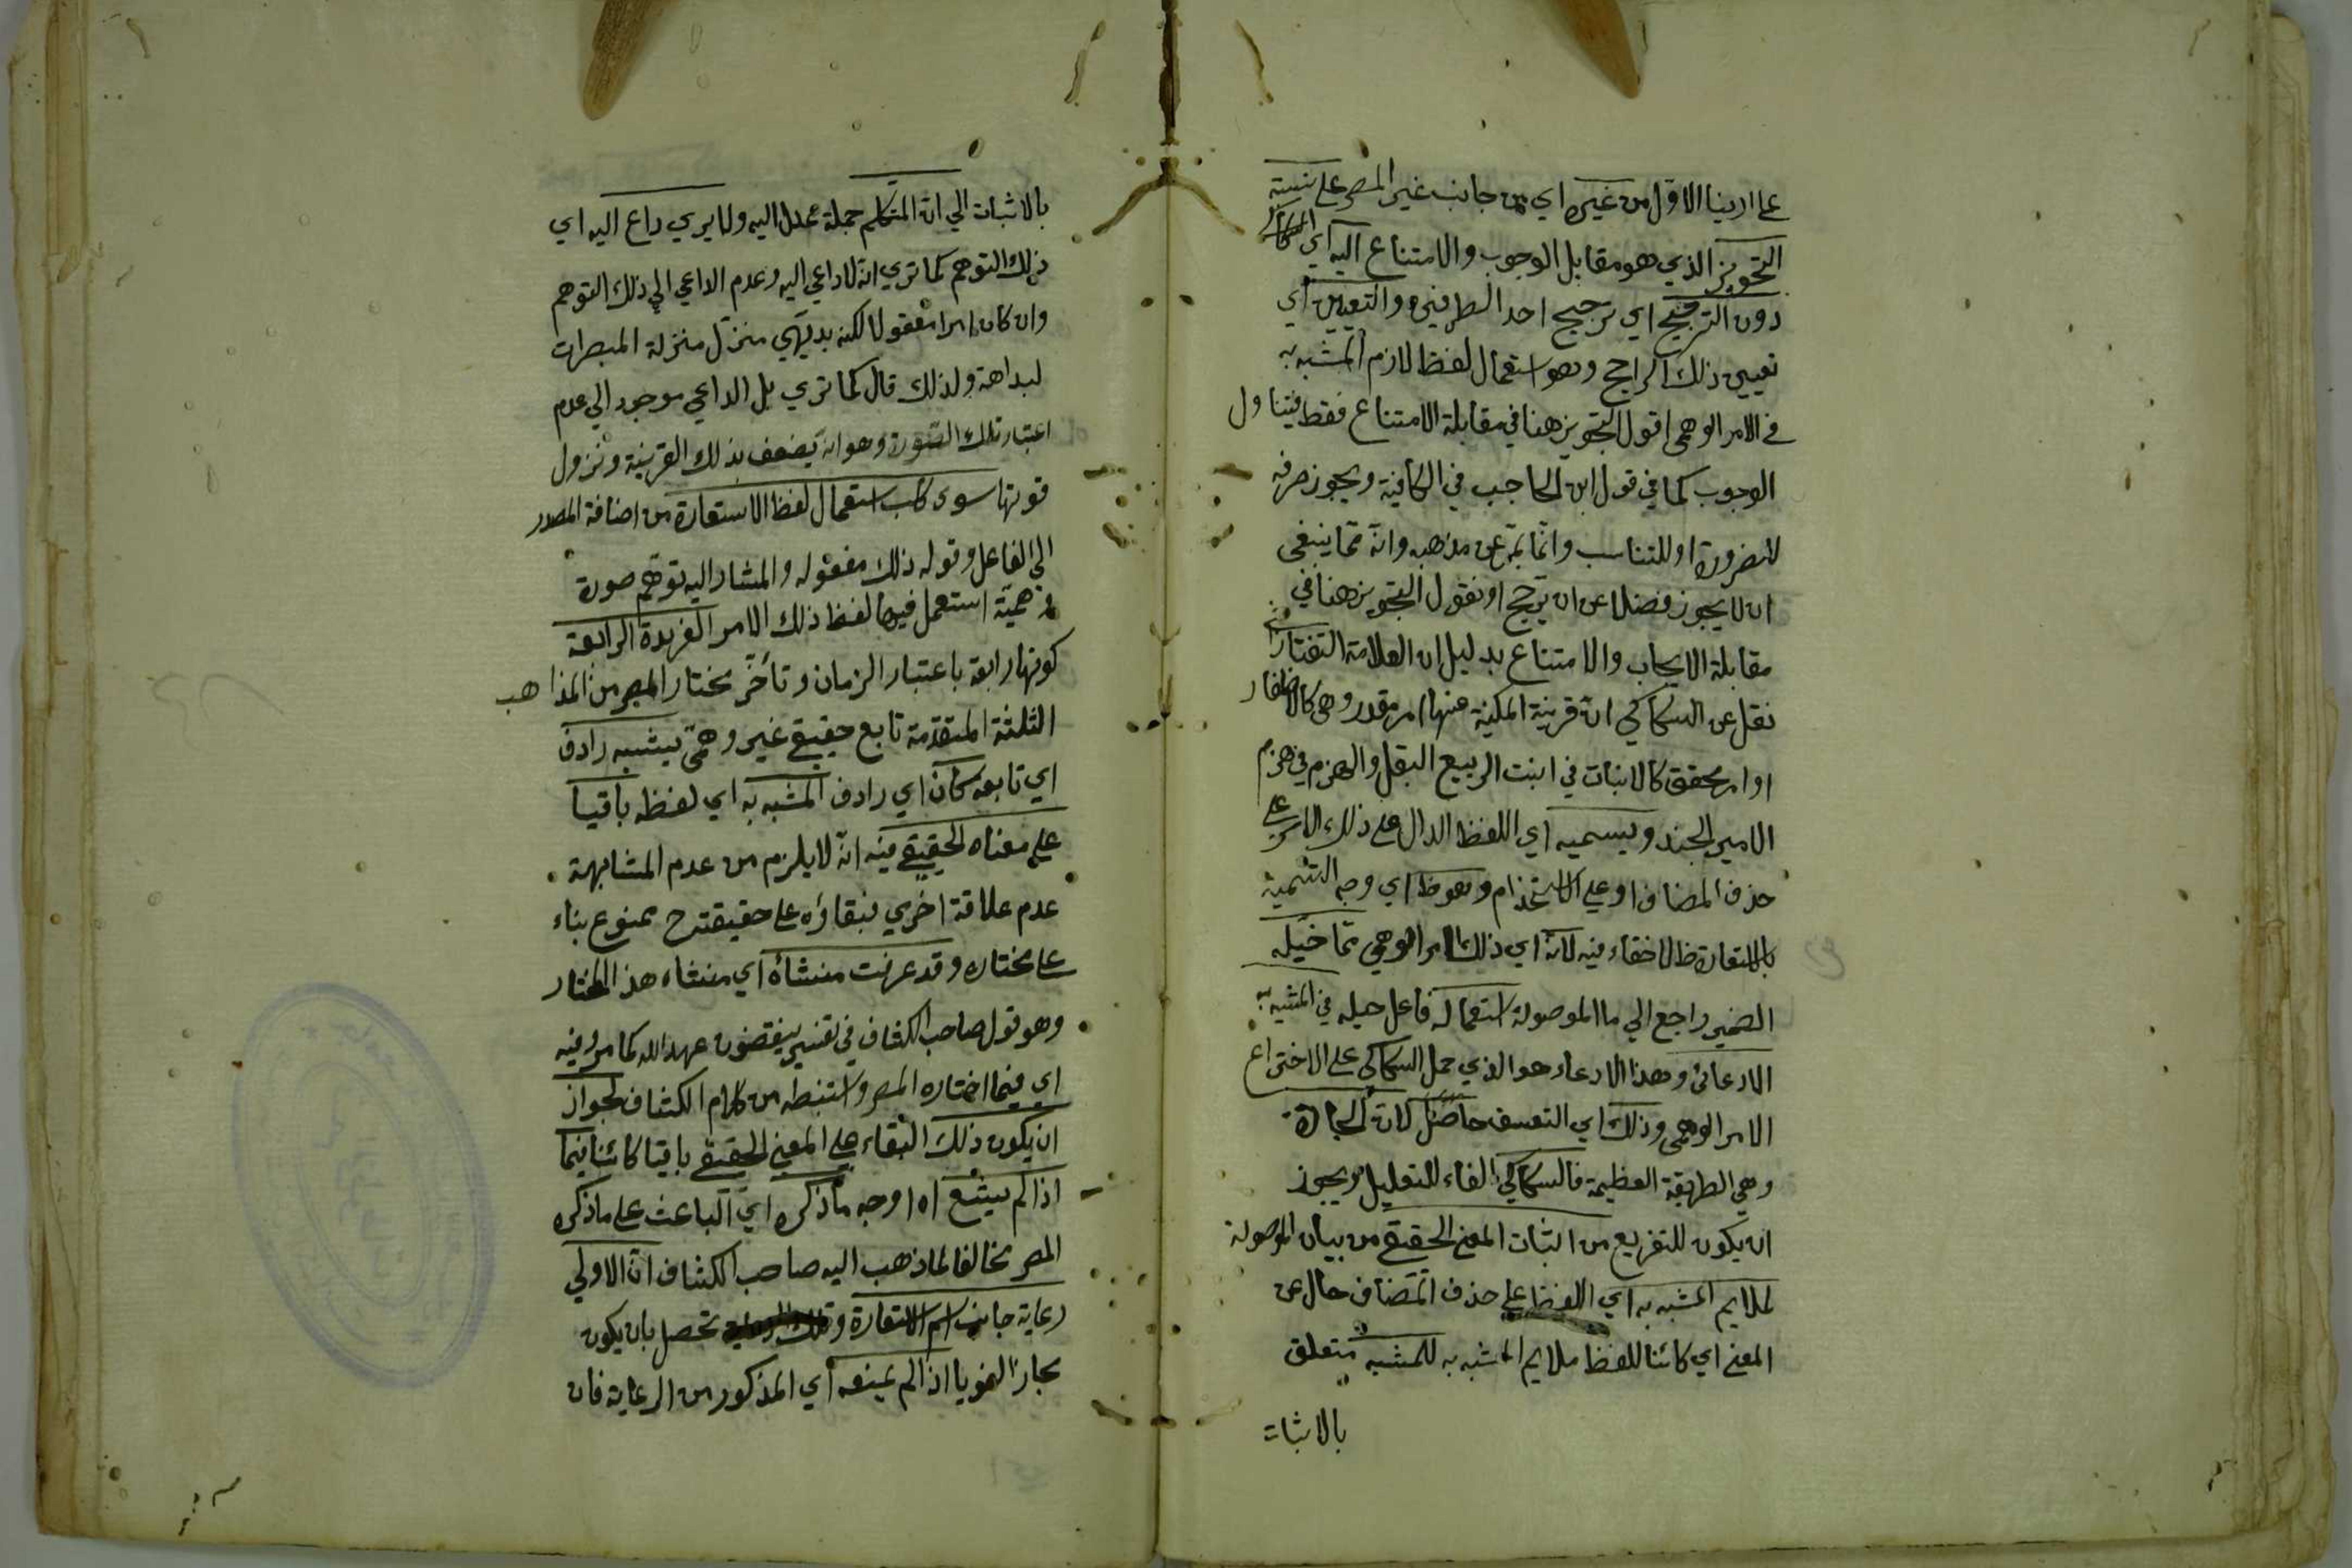 على اربنا الاوّل من غيره اي من جانب غير المصر على نسبة
التجويز الذي هو مقابل الوجوب والامتناع اليه اي السكاكي
دون الترجيح اي ترجيح احد الطرفين والتعيين اي
تعيين ذلك الراجح وهو استعمال لفظ لازم المشبه به
في الامر الوهمي اقول التجويز هنا في مقابلة الامتناع فقط فيتناول
الوجوب كما في قول ابن الحاجب في الكافية ويجوز صرفه
للضرورة او للتناسب وانه مما ينبغي
ان لا يجوز فضلا عن ان يرجح او نقول التجويز هنا في
مقابلة الايجاب والامتناع بدليل ان العلامة التفتازاني
نقل عن السكاكي انّ قرينة المكنية منها امر مقدر وهمي كالاظفار
او امر محقق كالانبات في انبت الربيع البقل والهزم في هزم
الامير الجند ويسميه اي اللفظ الدال على ذلك الامر على
حذف المضاف او على الاستخدام وهو ظ اي وجه التسمية
بالاستعارة ظ لا خفاء فيه لانه اي ذلك الامر الوهمي مما خيّله
الضمير راجع الي ما الموصولة استعماله فاعل حيله في المشبه به
الادعائي وهذا الادعاء هو الذي حمل السكاكي على الاختراع
الامر الوهمي وذلك اي التعسف حاصل لان الجادة
وهي الطريقة العظيمة فالسكاكي الفاء للتعليل ويجوز
ان يكون للتفريع من اثبات المعنى الحقيقي من بيان الموصولة
لملايم المشبه به اي اللفظ على حذف المضاف حال عن
المعنى اي كائنا للفظ ملايم المشبه به للمشبه متعلق
بالاثبات
بالاثبات الي ان المتكلم جملة عدل اليه ولا يري داع اليه اي
ذلك التوهم كما تري انه لا داعي اليه وعدم الداعي الي ذلك التوهم
وان كان امرا معقولا لكنه بديهي منزّل منزلة المبصرات
لبداهة ولذلك قال كما تري بل الداعي موجود الي عدم
اعتبار تلك الصورة وهو انه يضعف بذلك القرينة وتزول
قوتها سوى استعمال لفظ الاستعارة من اضافة المصدر
الى الفاعل وقوله ذلك مفعوله والمشار اليه توهّم صورة
وهميّة استعمل فيها لفظ ذلك الامر الفريدة الرابعة
كونها رابعة باعتبار الزمان وتأخّر مختار المصر من المذاهب
الثلثة المتقدّمة تابع حقيقي غير وهميّ يشبه رادف
اي تابعه كان اي رادف المشبه به اي لفظه باقيا
على معناه الحقيقي فيه انه لا يلزم من عدم المشابهة
عدم علاقة اخري فبقاؤه على حقيقته ح ممنوع بناء
على مختاره وقد عرفت منشأه اي منشاء هذا المختار
وهو قول صاحب الكشاف في تفسير ينقضون عهد الله كما مر وفيه
اي فيما اختاره المصر واستنبطه من كلام الكشاف لجواز
ان يكون ذلك البقاء على المعنى الحقيقي باقيا كائنا فيما
اذا لم يشع اه او وجه ما ذكره اي الباعث على ما ذكره
المصر مخالفا لما ذهب اليه صاحب الكشاف ان الاولي
رعاية جانب اسم الاستعارة تحصل بان يكون
مجازا لغويا اذا لم يمنعه اي المذكور من الرعاية فان